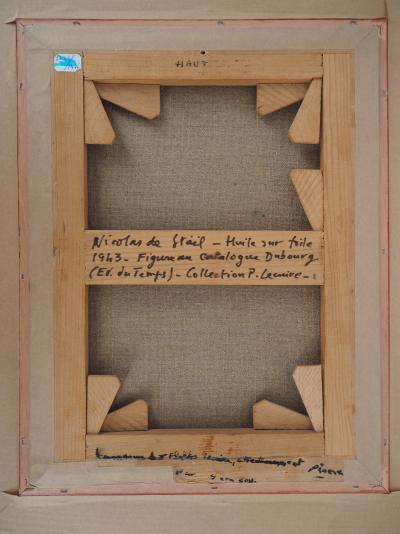 HAUT
Nicolas de Staël - Huile sur toile
1943 - Figure au catalogue Dubourg
(Ed. du Temps) - Collection P. Lecuire -